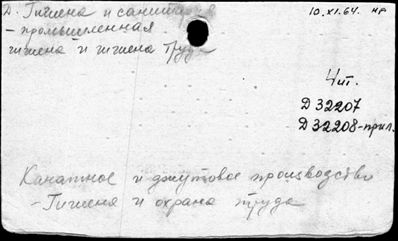 Д. Гигиена и санитария
10.XI.64. нр
- промышленная
гигиена и гигиена труда
4 шт.
Д 32207
Д 32208-прил.
Канатное и джутовое производство
- Гигиена и охрана труда